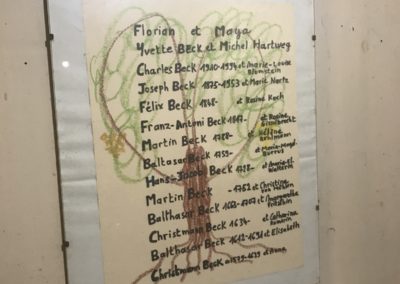 Florian et Maya
Yvette BECK et Michel Hartweg
Charles Beck 1910-1994 et Marie-Louise
Blumstein
Joseph Beck 1875-1953 et Marie
Félix Beck 1848- et Rosine Koch
Franz-Antoni Beck 1817- et Rosine
Martin Beck 1788- et Hélène
Baltasar Beck 1759- et Maria-Magd.
Burrus
Hans-Jacob Beck 1728- et
Martin Beck -1762 et Christine
Balthasar Beck et
Christmann Beck 1634- et Catharina
Balthasar Beck 1612-1691 et Elisabeth
Christmann Beck 1579-1639 et Anna